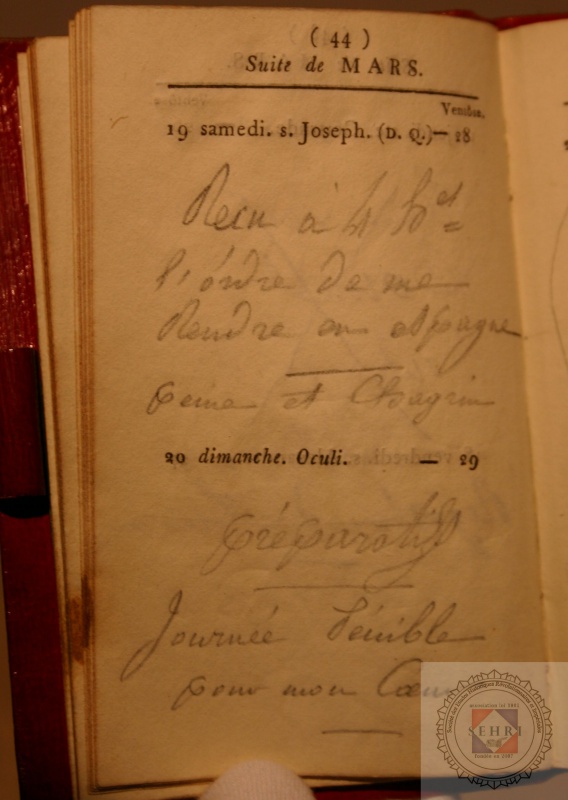 ( 44 )
Suite de MARS.
Ventôse.
19 samedi. s. Joseph. (D. Q.) — 28
Recu à 4 h
l'ordre de me
Rendre en Espagne
peine et Chagrin
20 dimanche. Oculi. — 29
préparatifs
Journée Pénible
pour mon Cœur
SEHRI